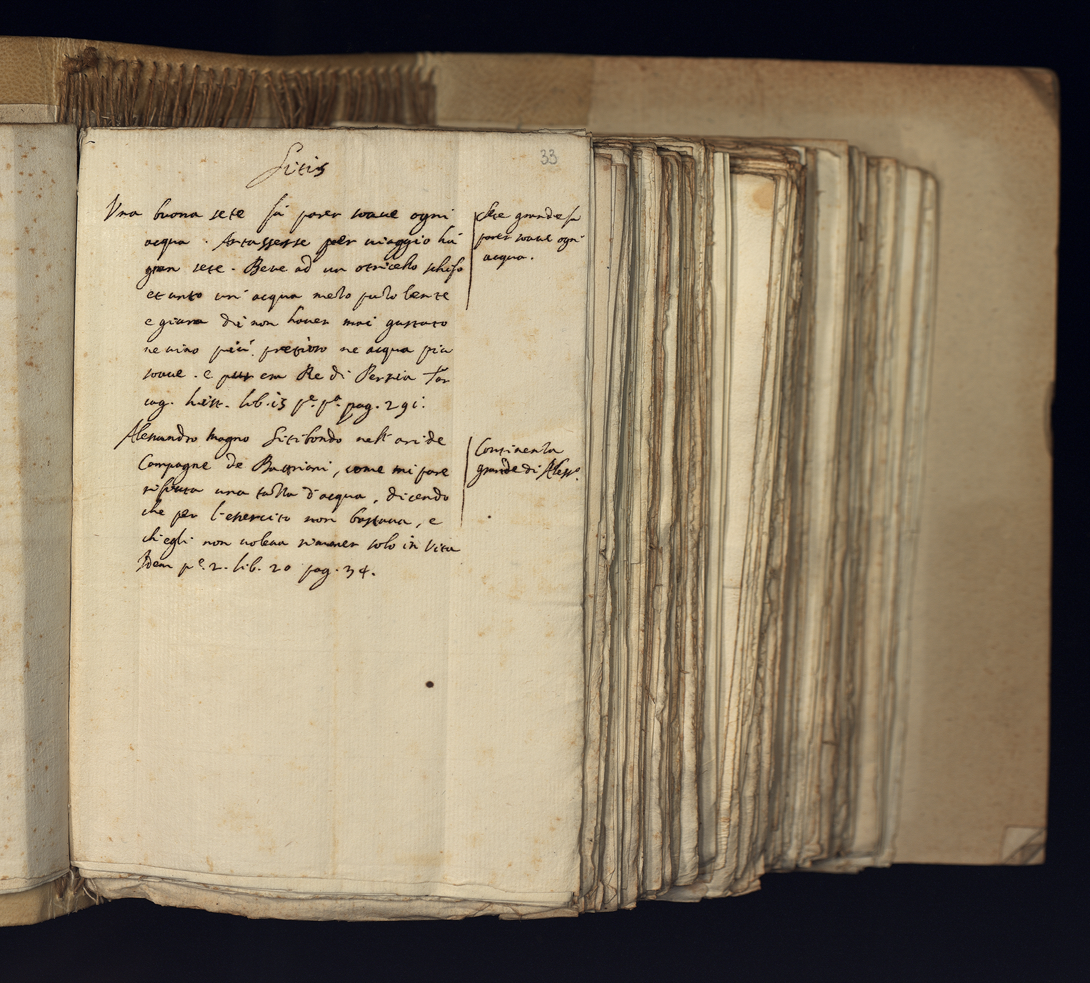 Sitis
33
Una buona sete fà parer soaue ogni
acqua. Artasserse per uiaggio hà
gran sete. Beue ad un otricello schifo
et unto un' acqua melo putolente
e giura di non hauer mai gustato
ne uino più pretioso ne acqua piu
soaue. e pur era Re di Persia Tar
cag. hist. lib. 13 pe. pa. pag. 291.
Sete grande fa
parer soaue ogni
acqua.
Alessandro magno Sitibondo nell' aride
Campagne de Battriani, come mi pare
rifiuta una tazza d'acqua, dicendo
che per l'esercito non bastaua, e
ch'egli non uoleua rimaner solo in Vita
Idem pe. 2. lib. 20 pag. 34.
Continenza
grande di Aless.o